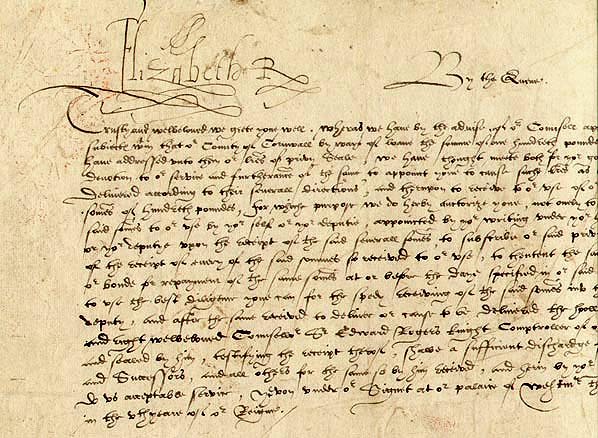 Elizabeth R
By the Quene.
Trusty and welbeloved we grete you well. Wheras we have by the advise of or Counsell app
subiects wthin that or County of Cornwall by waye of loane the somme of one hundreth poundes
have addressed unto them or lres of privy Seale, we have thought mete both for yor go
devotion to or service and furtherance of the same to appoint you to cause such lres as
delivered according to their severall directions, and therupon to receive to or use of
somes of hundreth poundes, for which purpose we do herby autorize you,
said somes to or use by yor self or yor deputie, appointed by yor writing under yor
or yor deputy upon the receipt of the said severall somes to subscribe or said priv
of the receipt of every of the said sommes so received to or use, to thentent the sa
or bonde for repayment of the same somes at or before the daye specified in or said
to use the best diligence you can for the spedy receiving of the said somes into
deputy, and after the same received to deliver or cause to be delivered the hole
and right welbeloved Counsellor Sr Edward Rogers knight Comptroller of o
and sealed by him, testifying the receipt therof, shalbe a sufficient discharge
and Successors, and all others for the same so by him received, and herin by yor
us acceptable service, Yeven under or Signet at or palaice of Westmr th
in the vth yeare of or Reigne.